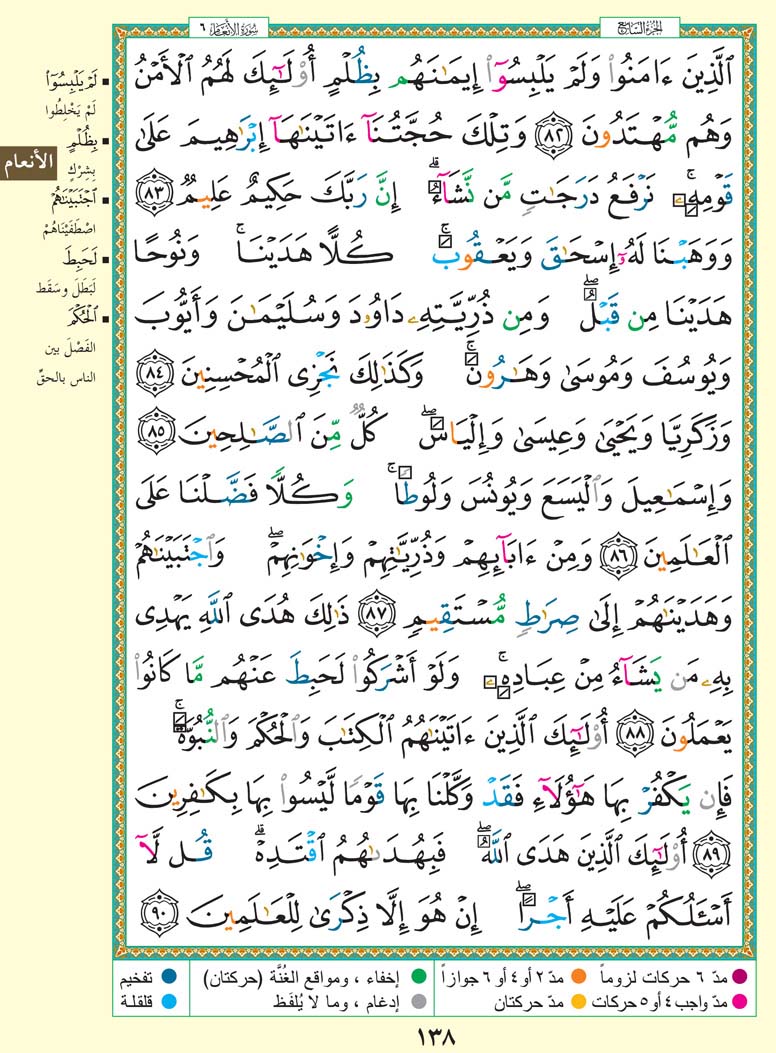 الجزء السابع
سورة الأنعام ٦
ٱلَّذِينَ ءَامَنُوا۟ وَلَمْ يَلْبِسُوٓا۟ إِيمَـٰنَهُم بِظُلْمٍ أُو۟لَـٰٓئِكَ لَهُمُ ٱلْأَمْنُ
وَهُم مُّهْتَدُونَ ﴿٨٢﴾ وَتِلْكَ حُجَّتُنَآ ءَاتَيْنَـٰهَآ إِبْرَٰهِيمَ عَلَىٰ
قَوْمِهِۦ ۚ نَرْفَعُ دَرَجَـٰتٍ مَّن نَّشَآءُ ۗ إِنَّ رَبَّكَ حَكِيمٌ عَلِيمٌ ﴿٨٣﴾
وَوَهَبْنَا لَهُۥٓ إِسْحَـٰقَ وَيَعْقُوبَ ۚ كُلًّا هَدَيْنَا ۚ وَنُوحًا
هَدَيْنَا مِن قَبْلُ ۖ وَمِن ذُرِّيَّتِهِۦ دَاوُۥدَ وَسُلَيْمَـٰنَ وَأَيُّوبَ
وَيُوسُفَ وَمُوسَىٰ وَهَـٰرُونَ ۚ وَكَذَٰلِكَ نَجْزِى ٱلْمُحْسِنِينَ ﴿٨٤﴾
وَزَكَرِيَّا وَيَحْيَىٰ وَعِيسَىٰ وَإِلْيَاسَ ۖ كُلٌّ مِّنَ ٱلصَّـٰلِحِينَ ﴿٨٥﴾
وَإِسْمَـٰعِيلَ وَٱلْيَسَعَ وَيُونُسَ وَلُوطًا ۚ وَكُلًّا فَضَّلْنَا عَلَى
ٱلْعَـٰلَمِينَ ﴿٨٦﴾ وَمِنْ ءَابَآئِهِمْ وَذُرِّيَّـٰتِهِمْ وَإِخْوَٰنِهِمْ ۖ وَٱجْتَبَيْنَـٰهُمْ
وَهَدَيْنَـٰهُمْ إِلَىٰ صِرَٰطٍ مُّسْتَقِيمٍ ﴿٨٧﴾ ذَٰلِكَ هُدَى ٱللَّهِ يَهْدِى
بِهِۦ مَن يَشَآءُ مِنْ عِبَادِهِۦ ۚ وَلَوْ أَشْرَكُوا۟ لَحَبِطَ عَنْهُم مَّا كَانُوا۟
يَعْمَلُونَ ﴿٨٨﴾ أُو۟لَـٰٓئِكَ ٱلَّذِينَ ءَاتَيْنَـٰهُمُ ٱلْكِتَـٰبَ وَٱلْحُكْمَ وَٱلنُّبُوَّةَ ۚ
فَإِن يَكْفُرْ بِهَا هَـٰٓؤُلَآءِ فَقَدْ وَكَّلْنَا بِهَا قَوْمًا لَّيْسُوا۟ بِهَا بِكَـٰفِرِينَ
﴿٨٩﴾ أُو۟لَـٰٓئِكَ ٱلَّذِينَ هَدَى ٱللَّهُ ۖ فَبِهُدَىٰهُمُ ٱقْتَدِهْ ۗ قُل لَّآ
أَسْـَٔلُكُمْ عَلَيْهِ أَجْرًا ۖ إِنْ هُوَ إِلَّا ذِكْرَىٰ لِلْعَـٰلَمِينَ ﴿٩٠﴾
الأنعام
• لَمْ يَلْبِسُوٓا۟
لَمْ يَخْلِطُوا
• بِظُلْمٍ
بِشِرْكٍ
• ٱجْتَبَيْنَـٰهُمْ
اصْطَفَيْنَاهُمْ
• لَحَبِطَ
لَبَطَلَ وسَقَط
• ٱلْحُكْمَ
الفَصْلَ بين
الناس بالحقِّ
مدّ ٦ حركات لزوماً
مدّ ٢ أو ٤ أو ٦ جوازاً
إخفاء ، ومواقع الغُنَّة (حركتان)
تفخيم
مدّ واجب ٤ أو ٥ حركات
مدّ حركتان
إدغام ، وما لا يُلفَظ
قلقلة
١٣٨